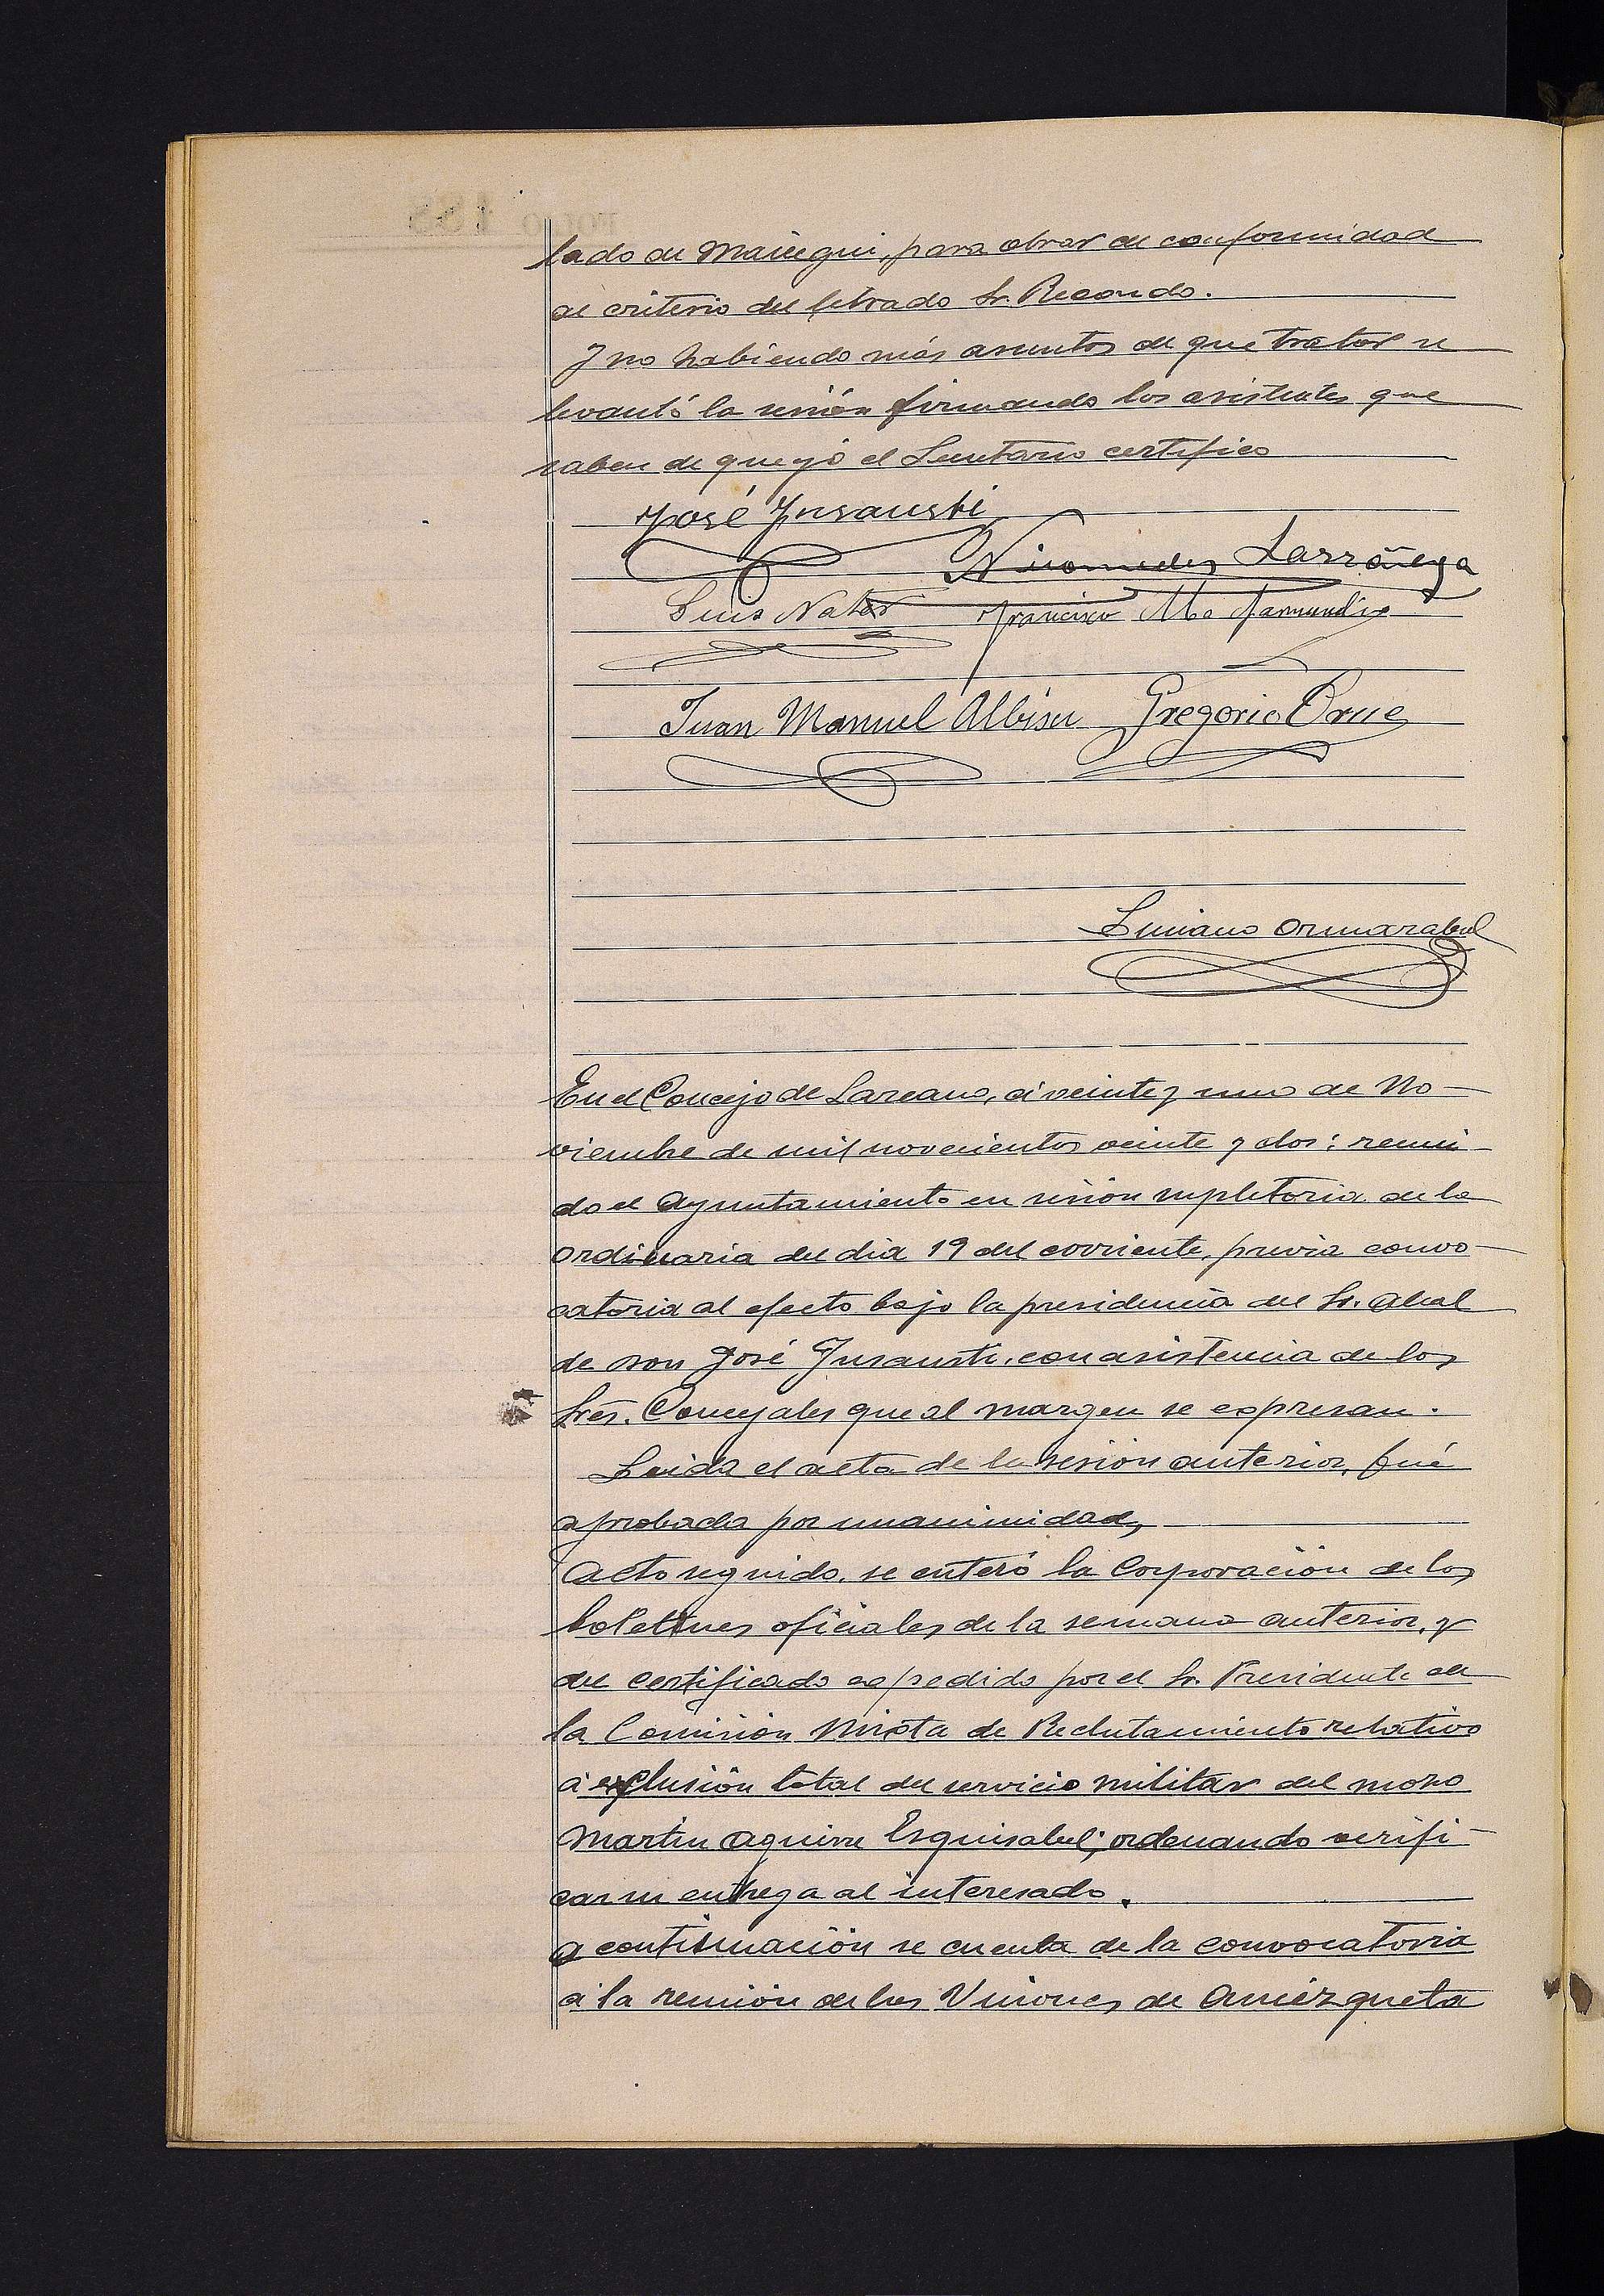 lado de Mauegui, para obrar de conformidad
al criterio del letrado Sr. Recondo.
Y no habiendo más asuntos de que tratar se
levantó la sesión firmando los asistentes que
saben de que yó el Secretario certifico
José Ynsausti
Nicomedes Larrañega
Luis Nator Francisco Ma Jamundia
Juan Manuel Albisu Gregorio Orue
Luciano Ormazabal
En el Concejo de Larcano, á veinte y uno de No-
viembre de mil novecientos veinte y dos: reuni-
do el Ayuntamiento en sesión supletoria de la
ordinaria del dia 19 del corriente, previa convo-
catoria al efecto bajo la presidencia del Sr. Alcal
de Don José Ynsausti, con asistencia de los
Srés. Concejales que al margen se expresan.
Leida el acta de la sesión anterior, fué
aprobada por unanimidad,
Acto seguido, se enteró la Corporación de los
boletines oficiales de la semana anterior, y
del certificado expedido por el Sr. Presidente de
la Comisión Mixta de Reclutamiento relativo
á exclusión total del servicio militar del mozo
Martin Aguirre Esquisabel; ordenando verifi-
car su entrega al interesado.
A continuación se cuenta de la convocatoria
á la reunión de las Uniones de Amézqueta